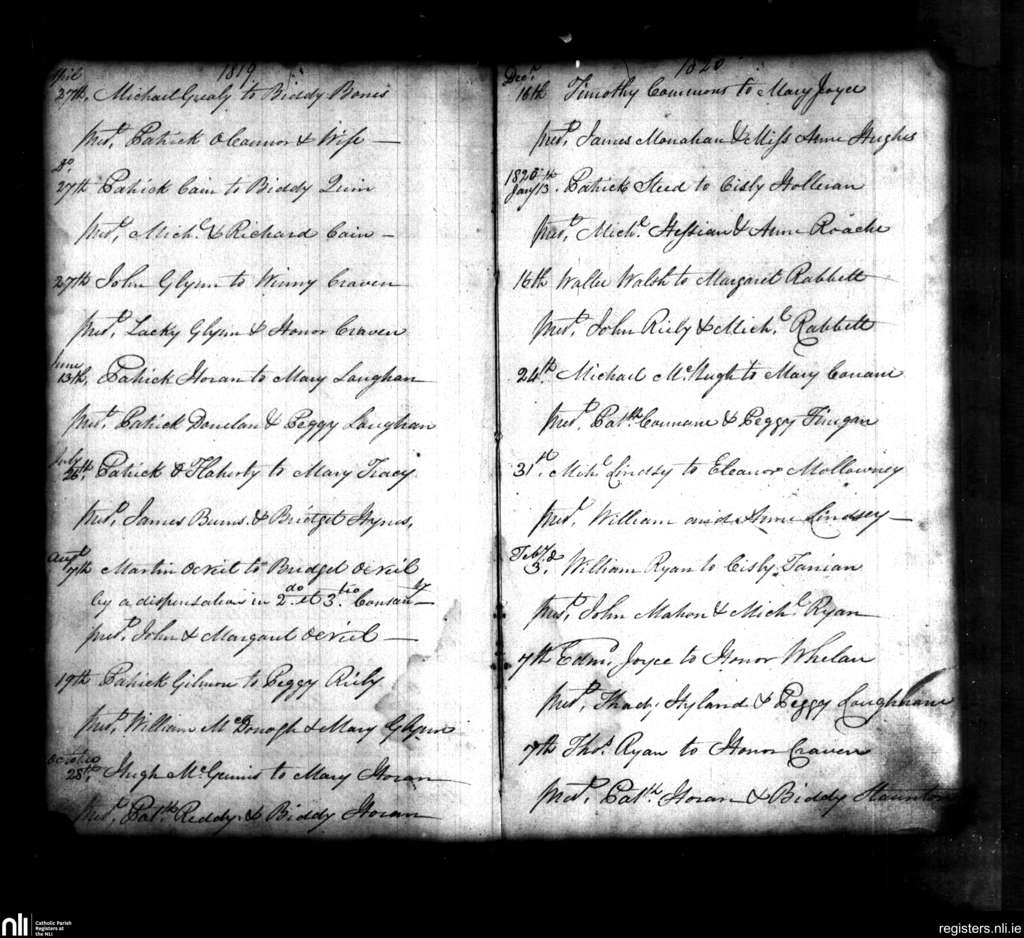 April 1819
27th, Michael Grealy to Biddy Bones
Prest, Patrick O Connor & Wife —
Do
27th Patrick Cain to Biddy Quin
Prest, Michl. & Richard Cain —
27th John Glynn to Winny Craven
Prest, Lacky Glynn & Honor Craven
June
13th, Patrick Horan to Mary Laughan
Prest. Patrick Donelan & Peggy Laughan
July
26th. Patrick O Flaherty to Mary Tracy.
Prest, James Burns. & Bridget Hynes,
Augt
7th Martin ONeil to Bridget ONeil
by a dispensation in 2do. et 3tio. Consanty—
Prest. John & Margaret ONeil —
19th Patrick Gilmore to Peggy Riely
Prest, William McDonogh & Mary Glynn
October
28th, Hugh McGennis to Mary Horan
Prest, Patk. Reddy. & Biddy Horan
Decr. 1820
16th Timothy Commons to Mary Joyce
Prest, James Monahan & Miss Anne Hughes
1820
Jany 13th. Patrick Steed to Cisly Holleran
Prest, Michl. Hessian & Anne Roache
16th Walter Walsh to Margaret Rabbett
Prest, John Riely & Michl. Rabbett
24th. Michael McHugh to Mary Conani
Prest, Patk. Counane & Peggy Finegan
31st. Michl Lindsy to Eleanor Mollowney
Prest, William and Anne Lindsey —
Feby
3d. William Ryan to Cisly Fanian
Prest, John Mahon & Michl. Ryan
7th Edmd. Joyce to Honor Whelan
Prest, Thady Hyland & Peggy Loughnane
7th Thos. Ryan to Honor Craven
Prest, Patk. Horan & Biddy Staunton
nli
Catholic Parish
Registers at
the NLI
registers.nli.ie